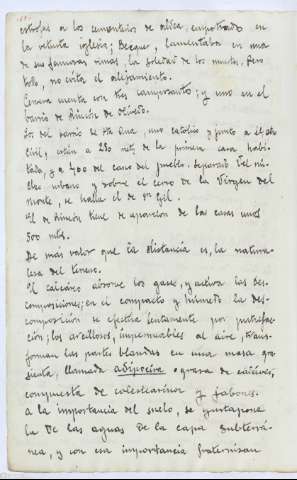 estrofas a los cementerios de aldea, empotrado en
la vetusta iglesia; Becquer, lamentaba en una
de sus famosas rimas, la soledad de los muertos. Pero
todo, no evita el alejamiento.
Cervera cuenta con tres camposantos; y uno en el
barrio de Rincón de Olivedo.
Los del barrio de Sta Ana, uno católico y junto a él, otro
civil, están a 250 mts. de la primera casa habi-
tada, y a 700 del casco del pueblo. Separado del nú-
cleo urbano y sobre el cerro de la Virgen del
Monte, se halla el de Sn Gil.
El de Rincón tiene de separación de las casas unos
500 mts.
De más valor que la distancia es, la natura-
leza del terreno.
El calcáreo absorve los gases, y activa las des-
composiciones; en el compacto y húmedo la des-
composición se efectúa lentamente por putrefac-
ción; los arcillosos, impermeables al aire, trans-
forman las partes blandas en una masa gra-
sienta, llamada adipocira o grasa de cadáver,
compuesta de colesterina y jabones.
A la importancia del suelo, se yuxtapone
la de las aguas de la capa subterrá-
nea, y con esa importancia fraternizan